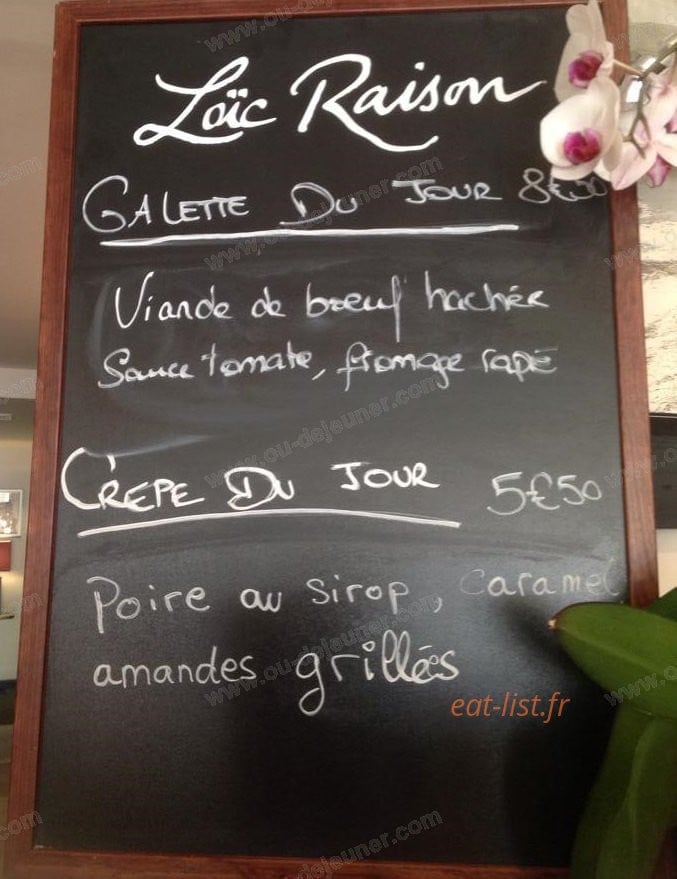 Loïc Raison
GALETTE DU JOUR 8€50
Viande de bœuf hachée
Sauce tomate, fromage rapé
CRÊPE DU JOUR 5€50
Poire au sirop, caramel
amandes grillées
eat-list.fr
www.ou-dejeuner.com